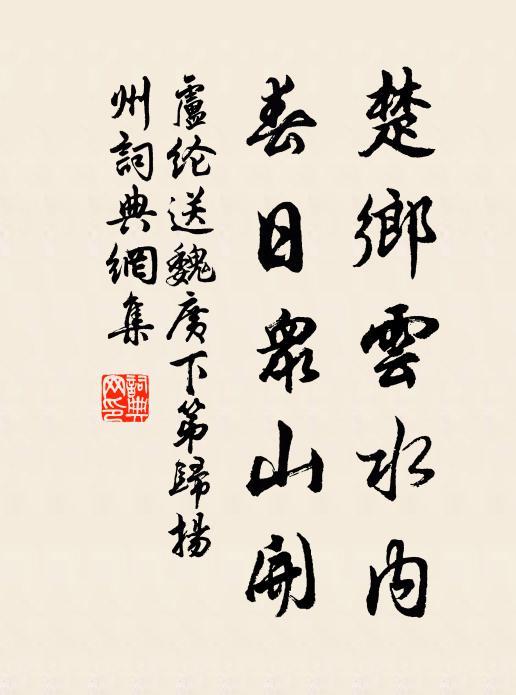 楚鄉雲水內
春日眾山開
盧綸送魏廣下第歸揚
州詞典網集
詞典
网印